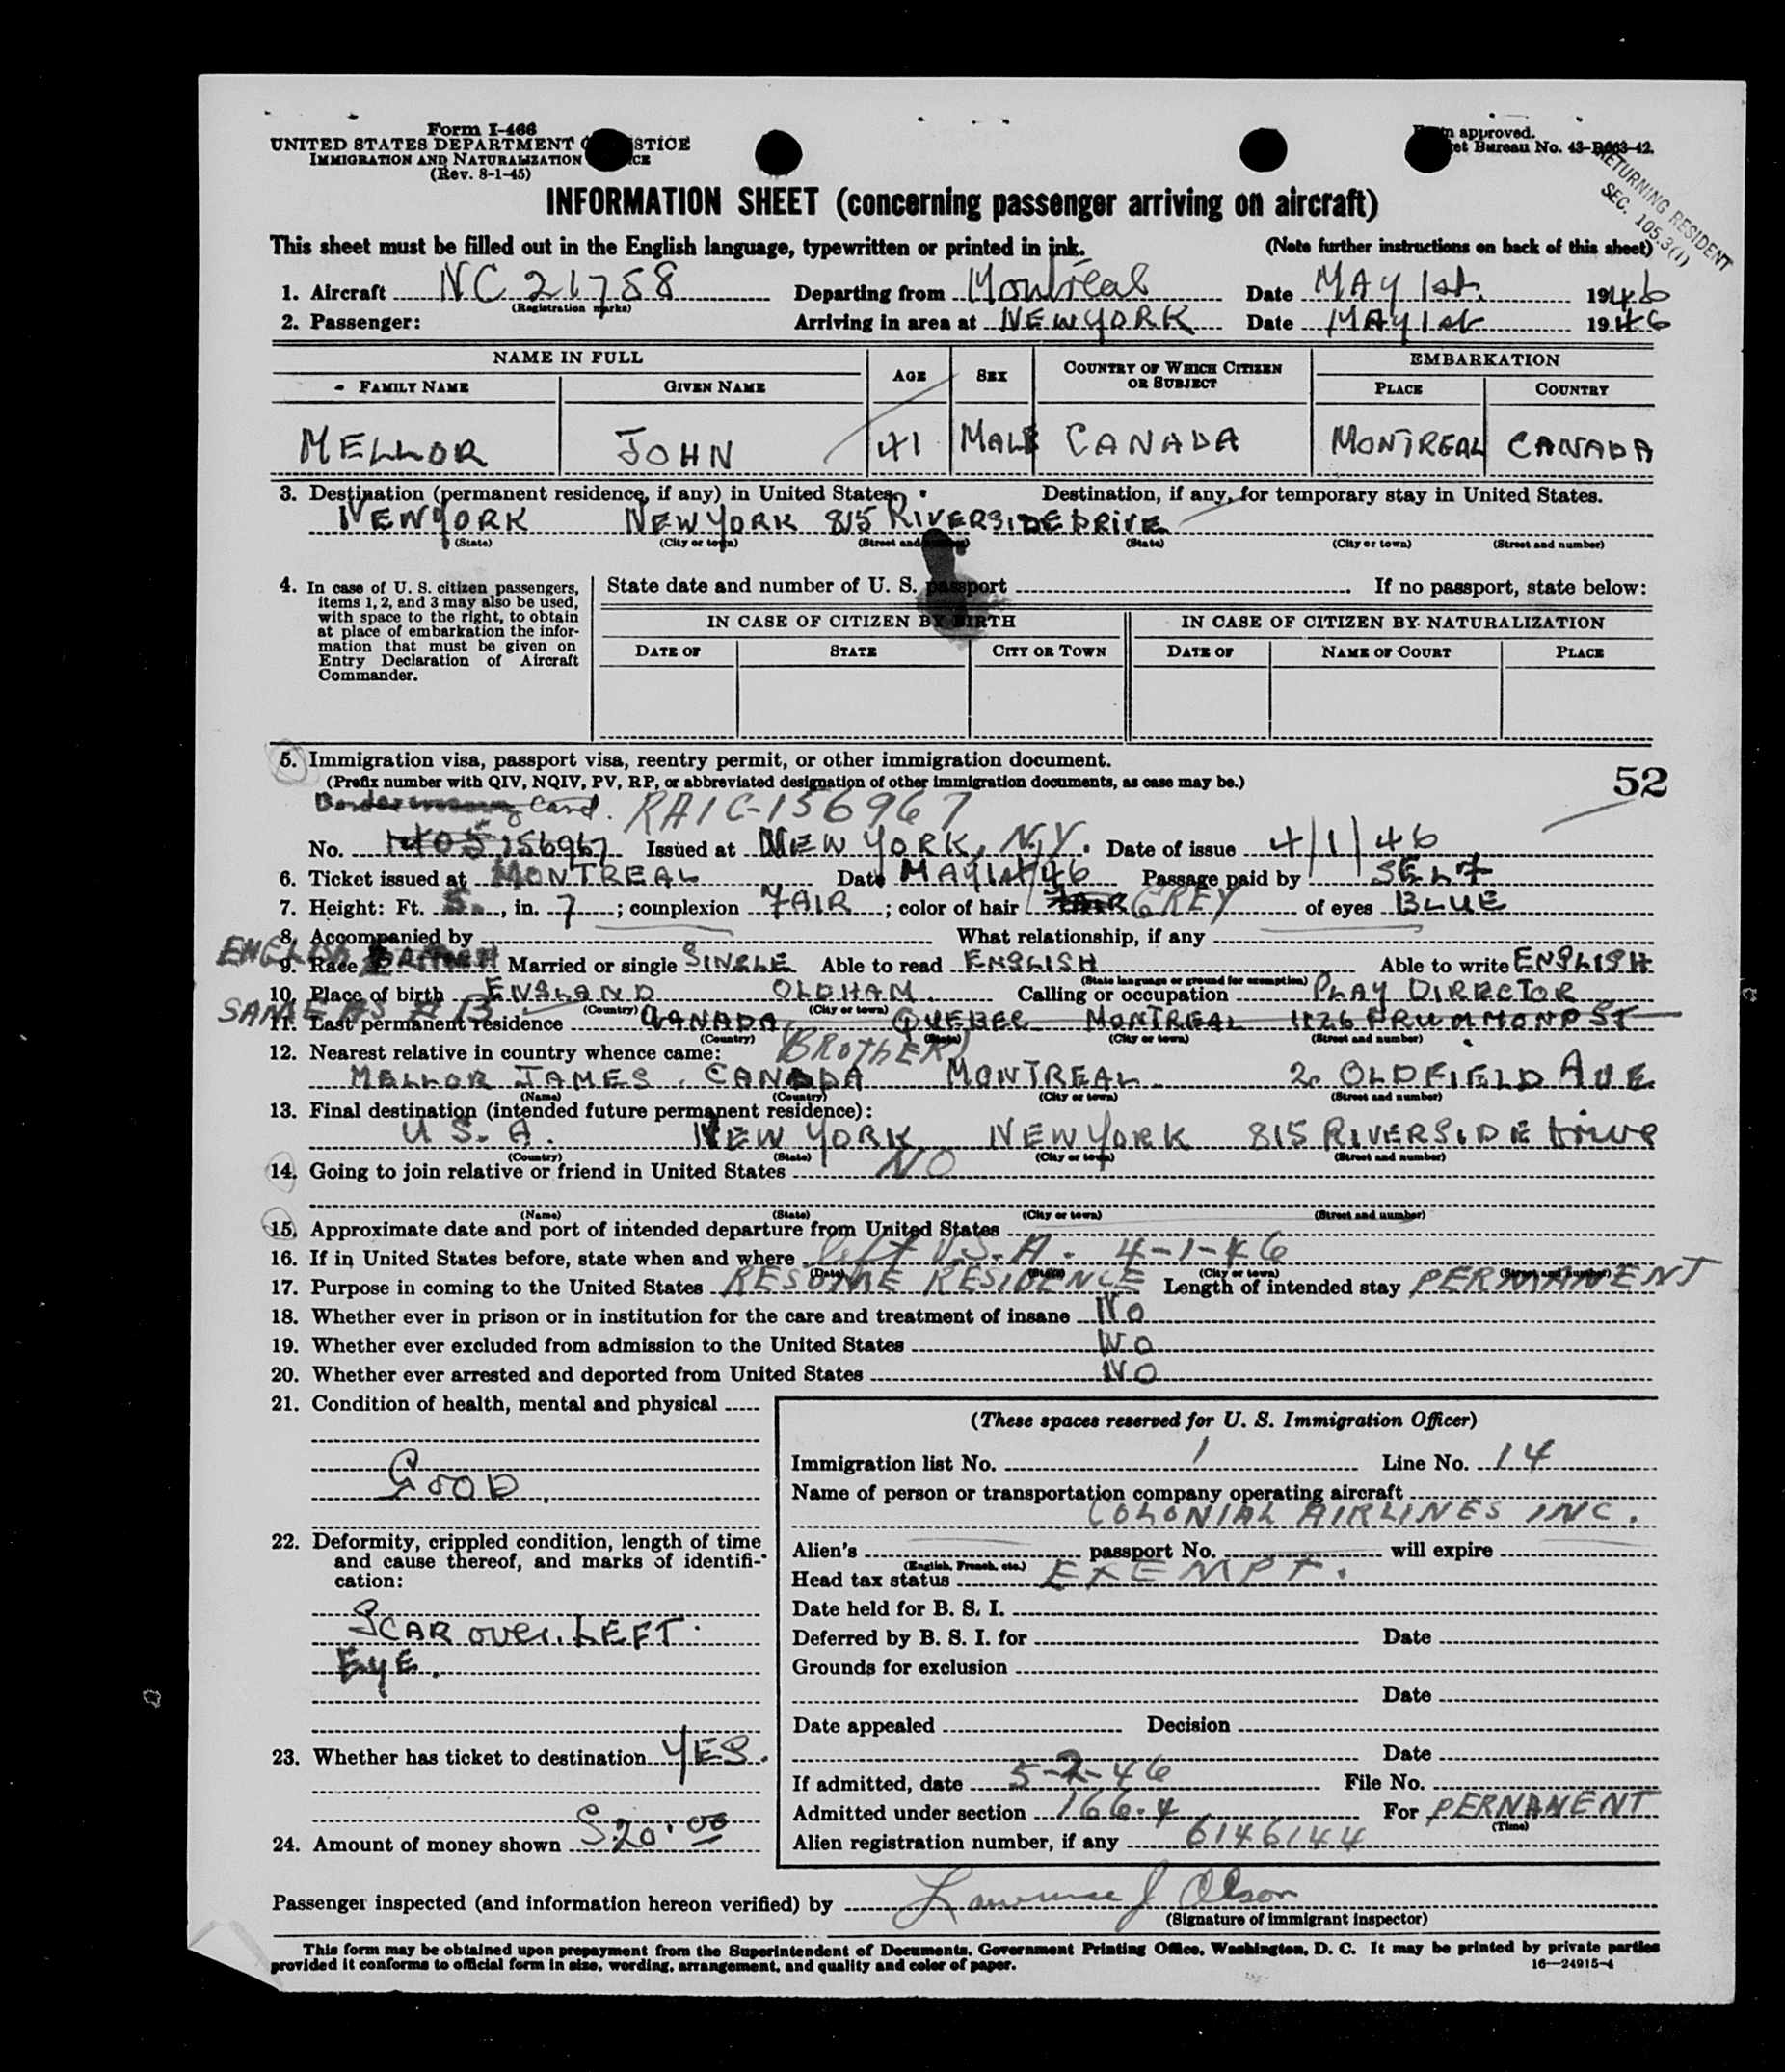 Form I-466
UNITED STATES DEPARTMENT STICE
IMMIGRATION AND NATURALIZATION CE
(Rev. 8-1-45)
approved.
et Bureau No. 43-R063-42.
RETURNING RESIDENT
SEC. 105.3(1)
INFORMATION SHEET (concerning passenger arriving on aircraft)
This sheet must be filled out in the English language, typewritten or printed in ink. (Note further instructions on back of this sheet)
1. Aircraft NC 21758 Departing from Montreal Date MAY 1st. 1946
(Registration marks)
2. Passenger: Arriving in area at NEW YORK Date MAY 1st 1946
NAME IN FULL AGE SEX COUNTRY OF WHICH CITIZEN OR SUBJECT EMBARKATION
FAMILY NAME GIVEN NAME PLACE COUNTRY
MELLOR JOHN 41 MALE CANADA MONTREAL CANADA
3. Destination (permanent residence, if any) in United States. Destination, if any, for temporary stay in United States.
NEW YORK NEW YORK 815 RIVERSIDE DRIVE
(State) (City or town) (Street and number) (State) (City or town) (Street and number)
4. In case of U. S. citizen passengers,
items 1, 2, and 3 may also be used,
with space to the right, to obtain
at place of embarkation the infor-
mation that must be given on
Entry Declaration of Aircraft
Commander.
State date and number of U. S. passport If no passport, state below:
IN CASE OF CITIZEN BY BIRTH IN CASE OF CITIZEN BY NATURALIZATION
DATE OF STATE CITY OR TOWN DATE OF NAME OF COURT PLACE
5. Immigration visa, passport visa, reentry permit, or other immigration document.
(Prefix number with QIV, NQIV, PV, RP, or abbreviated designation of other immigration documents, as case may be.)
52
Card. RAIC-156967
No. 156967 Issued at NEW YORK, N.Y. Date of issue 4/1/46
6. Ticket issued at MONTREAL Date MAY 1st 46 Passage paid by SELF
7. Height: Ft. 5, in. 7; complexion FAIR; color of hair GREY of eyes BLUE
8. Accompanied by What relationship, if any
ENGLISH
9. Race Married or single SINGLE Able to read ENGLISH Able to write ENGLISH
(State language or ground for exemption)
10. Place of birth ENGLAND OLDHAM Calling or occupation PLAY DIRECTOR
(Country) (City or town)
SAME AS # 13
11. Last permanent residence CANADA, QUEBEC MONTREAL 1126 DRUMMOND ST
(Country) (State) (City or town) (Street and number)
12. Nearest relative in country whence came: (BROTHER)
MELLOR JAMES. CANADA MONTREAL 2. OLDFIELD AVE
(Name) (Country) (City or town) (Street and number)
13. Final destination (intended future permanent residence):
U.S.A. NEW YORK NEW YORK 815 RIVERSIDE drive
(Country) (State) (City or town) (Street and number)
14. Going to join relative or friend in United States NO
(Name) (State) (City or town) (Street and number)
15. Approximate date and port of intended departure from United States
16. If in United States before, state when and where left U.S.A. 4-1-46
(Date) (State) (City or town) (Street and number)
17. Purpose in coming to the United States RESUME RESIDENCE Length of intended stay PERMANENT
18. Whether ever in prison or in institution for the care and treatment of insane No
19. Whether ever excluded from admission to the United States NO
20. Whether ever arrested and deported from United States NO
21. Condition of health, mental and physical
GOOD.
22. Deformity, crippled condition, length of time
and cause thereof, and marks of identifi-
cation:
SCAR over LEFT
EYE.
23. Whether has ticket to destination YES.
24. Amount of money shown $20.00
(These spaces reserved for U. S. Immigration Officer)
Immigration list No. 1 Line No. 14
Name of person or transportation company operating aircraft
COLONIAL AIRLINES INC.
Alien's passport No. will expire
(English, French, etc.)
Head tax status EXEMPT.
Date held for B. S. I.
Deferred by B. S. I. for Date
Grounds for exclusion
Date
Date appealed Decision
Date
If admitted, date 5-2-46 File No.
Admitted under section 166.4 For PERMANENT
(Time)
Alien registration number, if any 6146144
Passenger inspected (and information hereon verified) by Lawrence J Olson
(Signature of immigrant inspector)
This form may be obtained upon prepayment from the Superintendent of Documents, Government Printing Office, Washington, D. C. It may be printed by private parties
provided it conforms to official form in size, wording, arrangement, and quality and color of paper. 16—24915-4